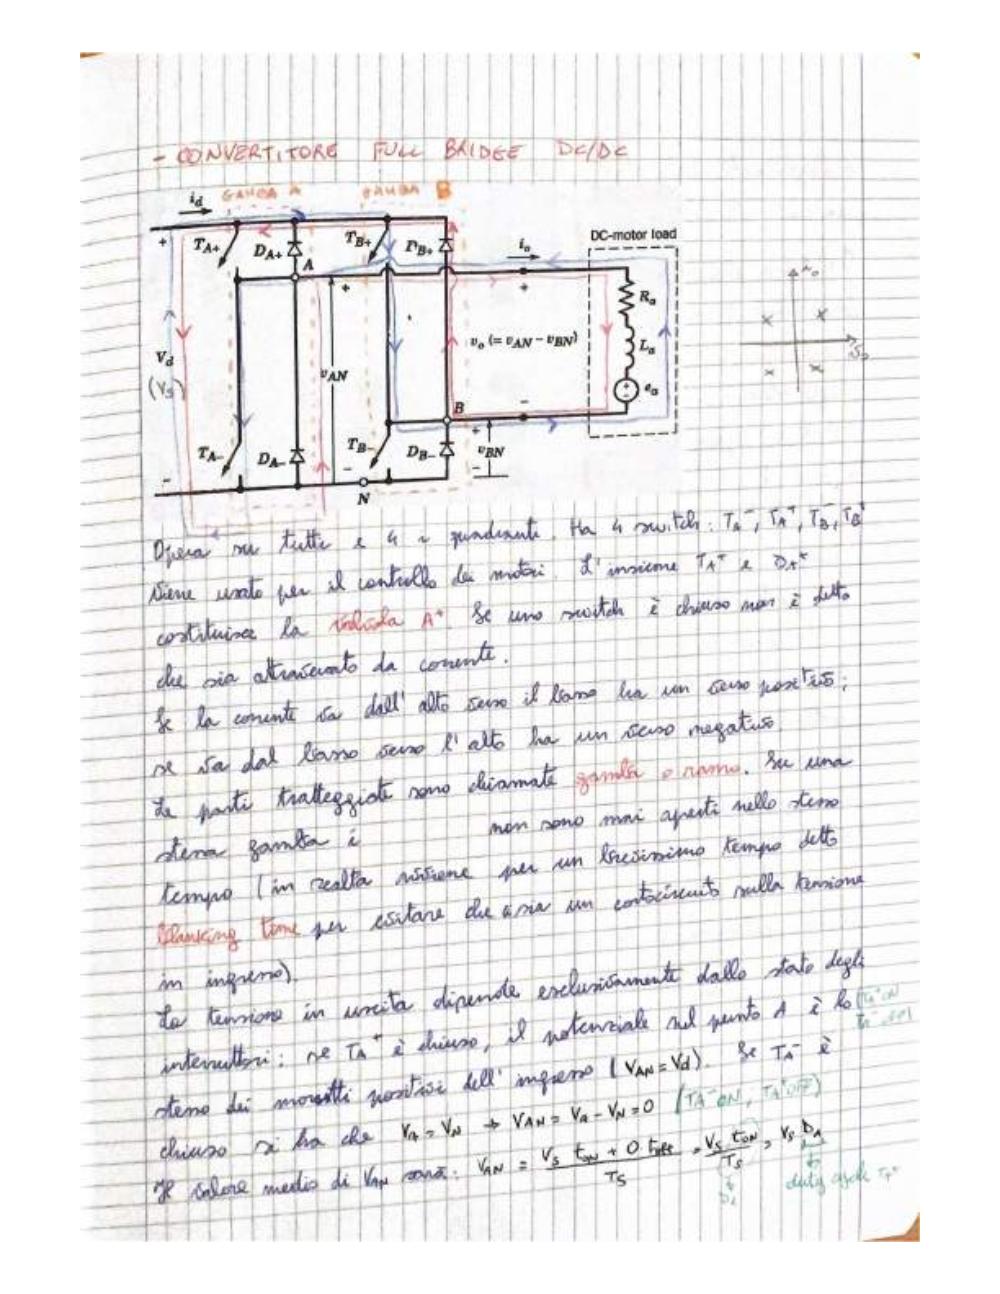 - CONVERTITORE FULL BRIDGE DC/DC
GAMBA A
GAMBA B
id
+
TA+
DA+
A
TB+
DB+
io
DC-motor load
Ra
La
ea
Vd
(Vs)
vAN
vo (= vAN - vBN)
+
-
B
TA-
DA-
TB-
DB-
vBN
N
Opera su tutti e 4 i quadranti. Ha 4 switch: TA-, TA+, TB-, TB+
Viene usato per il controllo dei motori. L'insieme TA+ e DA+
costituisce la valvola A+. Se uno switch è chiuso non è detto
che sia attraversato da corrente.
Se la corrente va dall'alto verso il basso ha un verso positivo;
se va dal basso verso l'alto ha un verso negativo.
Le parti tratteggiate sono chiamate gamba o ramo. Su una
stessa gamba i non sono mai aperti nello stesso
tempo (in realtà avviene per un brevissimo tempo detto
blanking time per evitare che ci sia un cortocircuito sulla tensione
in ingresso).
La tensione in uscita dipende esclusivamente dallo stato degli
interruttori: se TA+ è chiuso, il potenziale nel punto A è lo (TA+ ON TA- OFF)
stesso dei morsetti positivi dell'ingresso (VAN = Vd). Se TA- è
chiuso si ha che VA = VN → VAN = VA - VN = 0 (TA- ON, TA+ OFF)
Il valore medio di VAN sarà: VAN = (Vs ton + 0 toff) / Ts = Vs ton / Ts = Vs DA
duty cycle